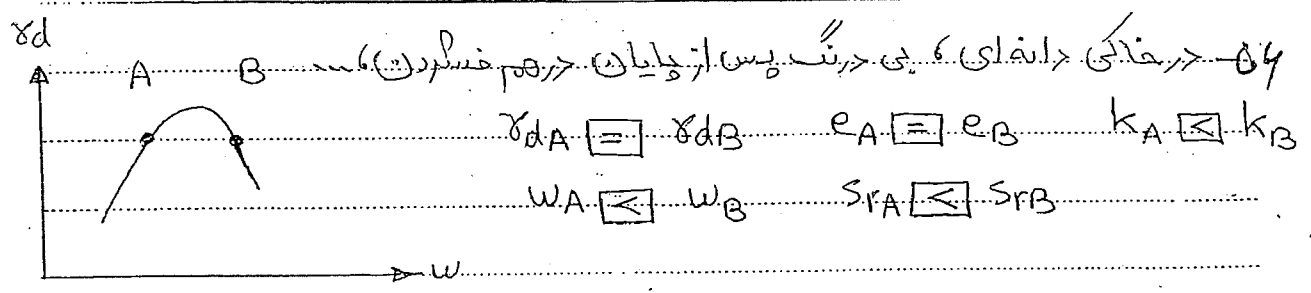 γd
A B
۵۴- در خاکی دانه‌ای، بی درنگ پس از پایان درهم فشردن، ...
γdA = γdB eA = eB kA < kB
wA < wB SrA < SrB
w